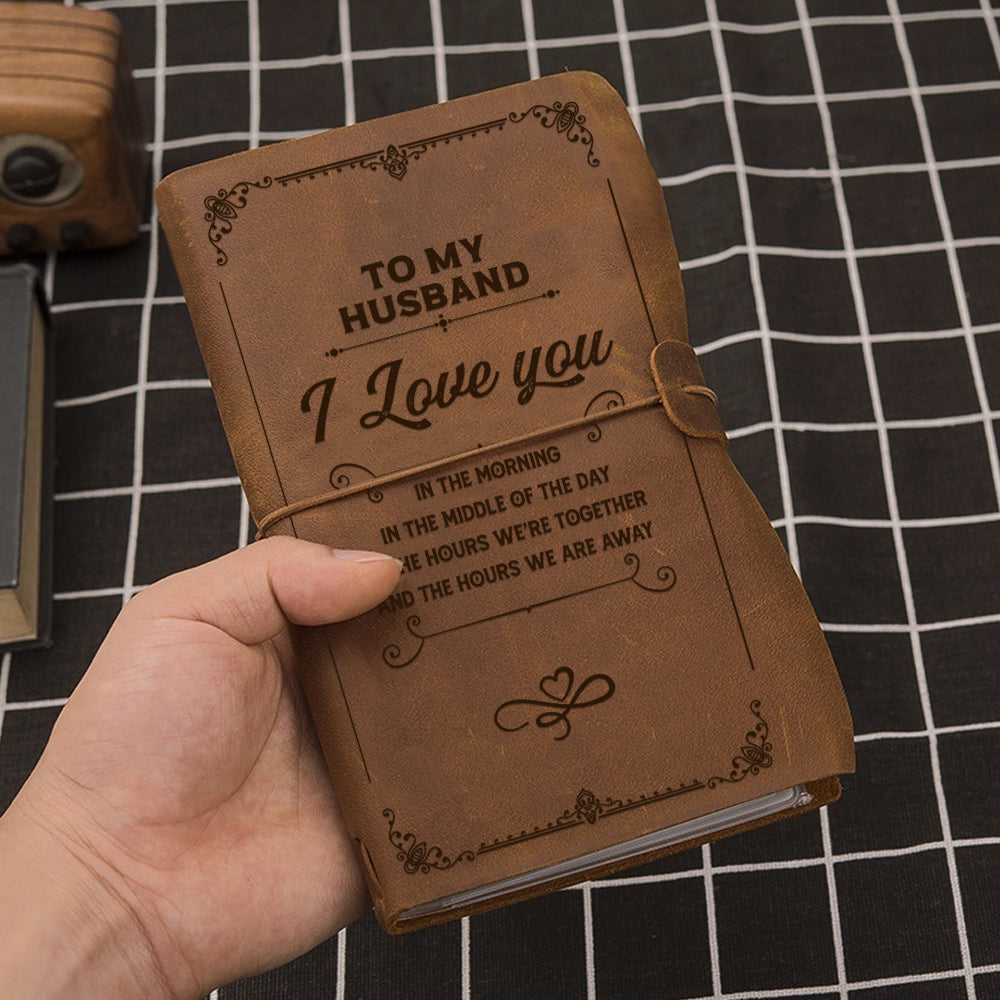 TO MY
HUSBAND
I Love you
IN THE MORNING
IN THE MIDDLE OF THE DAY
HE HOURS WE'RE TOGETHER
AND THE HOURS WE ARE AWAY